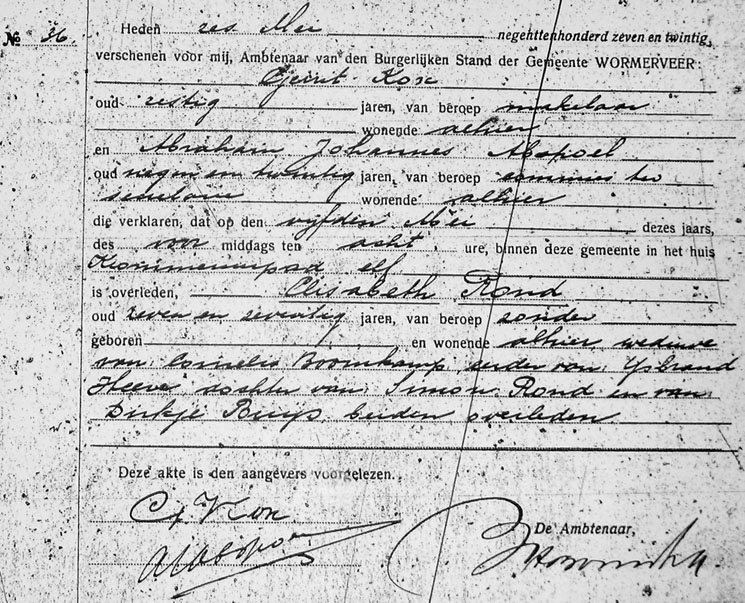 № 36. Heden zes Mei negenttienhonderd zeven en twintig,
verschenen voor mij, Ambtenaar van den Burgerlijken Stand der Gemeente WORMERVEER:
Gerrit Kox
oud zestig jaren, van beroep makelaar
wonende alhier
en Abraham Johannes Abspoel
oud negen en twintig jaren, van beroep commies ter
secretarie wonende alhier
die verklaren, dat op den vijfden Mei dezes jaars,
des voor middags ten acht ure, binnen deze gemeente in het huis
Krommenierpad elf
is overleden, Elisabeth Rond
oud zeven en zeventig jaren, van beroep zonder
geboren en wonende alhier weduwe
van: Cornelis Boomkamp, eerder van: IJsbrand
Heeve, dochter van: Simon Rond en van
Dirkje Buijs, beiden overleden.
Deze akte is den aangevers voorgelezen.
G Kox
De Ambtenaar,